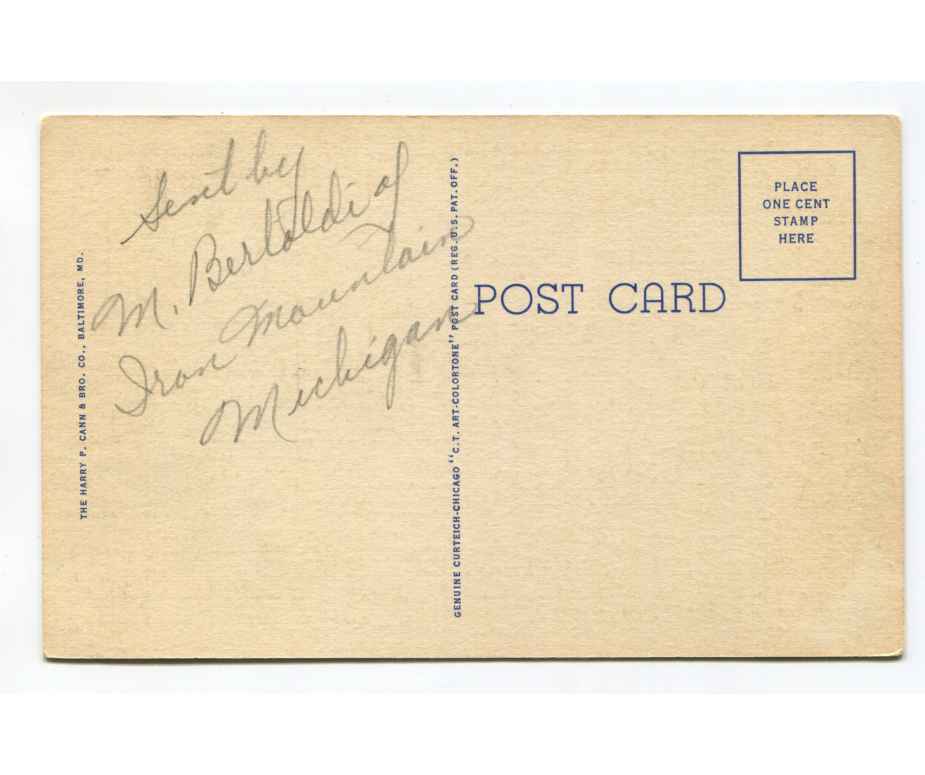 Sent by
M. Bertoldi of
Iron Mountain
Michigan
THE HARRY P. CANN & BRO. CO., BALTIMORE, MD.
GENUINE CURTEICH-CHICAGO "C.T. ART-COLORTONE" POST CARD (REG. U.S. PAT. OFF.)
POST CARD
PLACE
ONE CENT
STAMP
HERE